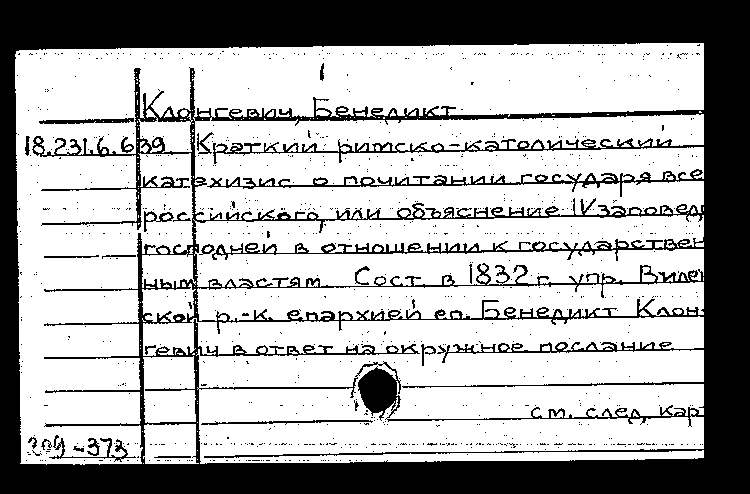 Клонгевич, Бенедикт
18.231.6.639. Краткий римско-католический
катехизис о почитании государя все
российского, или объяснение IV заповед
господней в отношении к государствен
ным властям. Сост. в 1832 г. упр. Вилен
ской р.-к. епархией еп. Бенедикт Клон-
гевич в ответ на окружное послание
см. след. кар
209-373